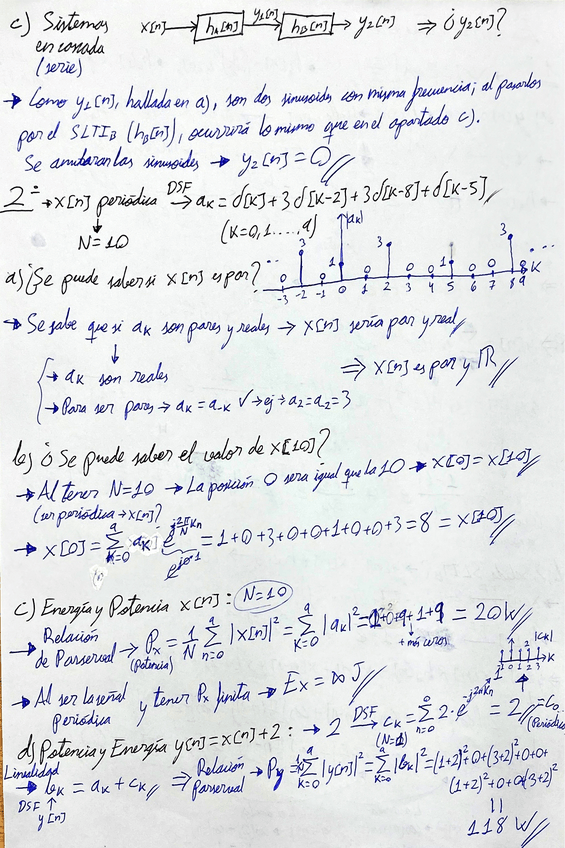 c) Sistemas en cascada (serie) x[n] → h_A[n] → y₁[n] → h_B[n] → y₂[n] ⇒ ¿y₂[n]?
→ Como y₁[n], hallada en a), son dos sinusoides con misma frecuencia; al pasarlos
por el SLTI_B (h_B[n]), ocurrirá lo mismo que en el apartado c).
Se anularan las sinusoides → y₂[n] = 0
2º → x[n] periódica DSF→ a_K = δ[K] + 3δ[K-2] + 3δ[K-8] + δ[K-5]
N=10 (K=0,1....,9)
|a_K|
... 0 3 0 1 0 3 0 0 1 0 0 3 0 ...
-3 -2 -1 0 1 2 3 4 5 6 7 8 9 K
a) ¿Se puede saber si x[n] es par?
→ Se sabe que si a_K son pares y reales → x[n] sería par y real
→ a_K son reales ⇒ x[n] es par y ℝ
→ Para ser pares → a_K = a_-K ✓ → ej → a₂ = a₂ = 3
b) ¿Se puede saber el valor de x[10]?
→ Al tener N=10 → La posición 0 sera igual que la 10 → x[0] = x[10]
(ser periódica → x[n]?
→ x[0] = Σ_{K=0}^{9} a_K e^{j2π/N Kn} = 1+0+3+0+0+1+0+0+3 = 8 = x[10]
e^{j0}=1
c) Energía y Potencia x[n]: N=10
→ Relación de Parserval → P_x = 1/N Σ_{n=0}^{9} |x[n]|² = Σ_{K=0}^{9} |a_K|² = 1+0+9+1+9 = 20W
(Potencia) + más ceros
→ Al ser la señal periódica y tener P_x finita → E_x = ∞ J
|C_K|
-1 0 1 2 3 K
d) Potencia y Energía y[n] = x[n]+2: → 2 DSF→ (N=1) C_K = Σ_{n=0}^{0} 2·e^{-j2πKn} = 2 = C₀ (Periódica
Linealidad
→ b_K = a_K + C_K ⇒ Relación Parserval → P_y = 1/N Σ_{K=0}^{9} |y[n]|² = Σ_{K=0}^{9} |b_K|² = (1+2)²+0+(3+2)²+0+0+
DSF ↑ y[n] (1+2)²+0+0+(3+2)²
118 W